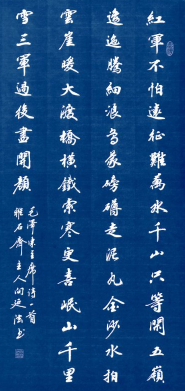 紅軍不怕遠征難萬水千山只等閑五嶺
逶迤騰細浪烏蒙磅礴走泥丸金沙水拍
雲崖暖大渡橋橫鐵索寒更喜岷山千里
雪三軍過後盡開顏
毛澤東主席詩一首
雅石齋主人向延法书